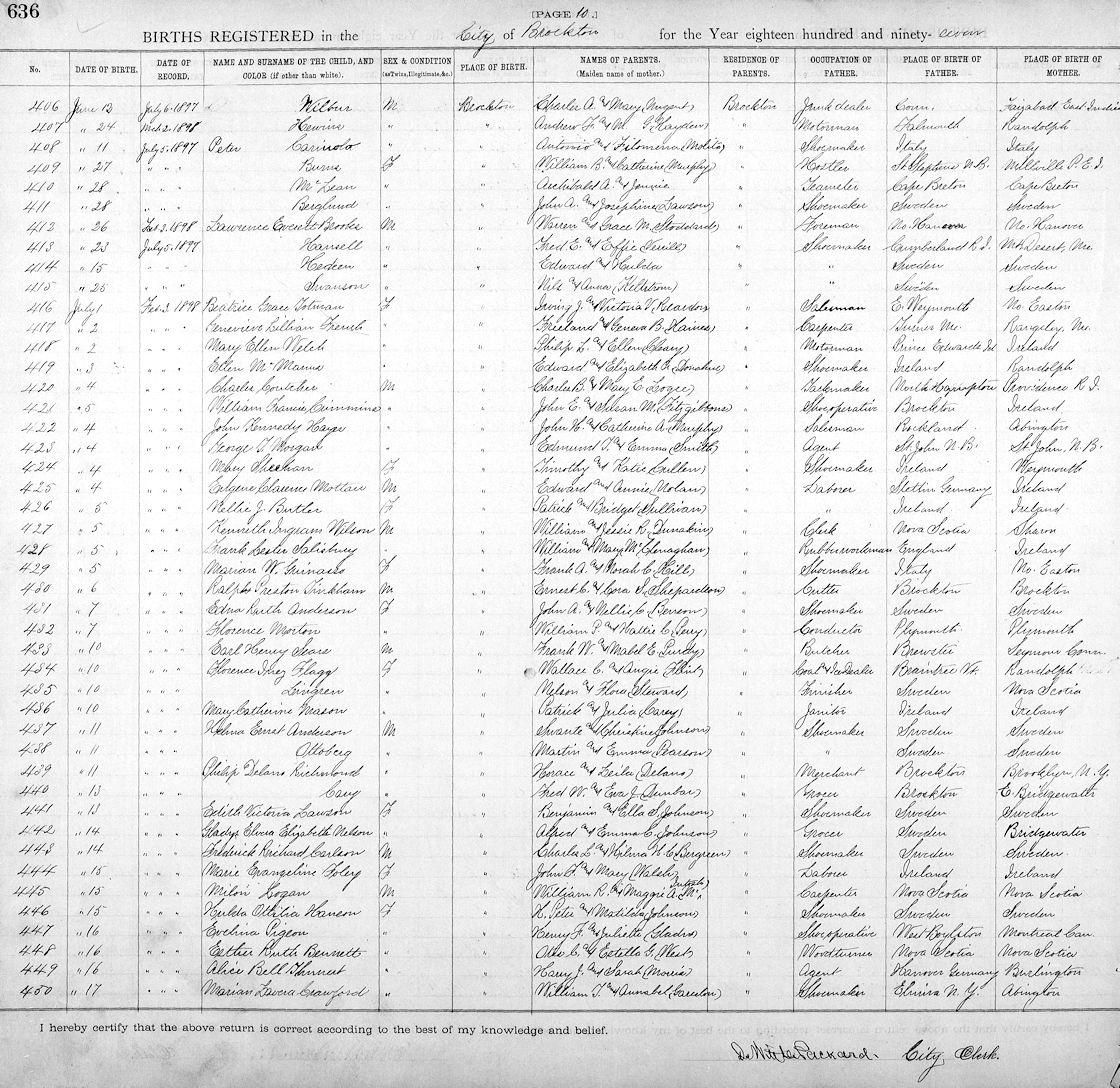 636
[PAGE 10.]
BIRTHS REGISTERED in the City of Brockton for the Year eighteen hundred and ninety- seven
No. DATE OF BIRTH. DATE OF RECORD. NAME AND SURNAME OF THE CHILD, AND COLOR (if other than white). SEX & CONDITION (as Twins, Illegitimate, &c.) PLACE OF BIRTH. NAMES OF PARENTS. (Maiden name of mother.) RESIDENCE OF PARENTS. OCCUPATION OF FATHER. PLACE OF BIRTH OF FATHER. PLACE OF BIRTH OF MOTHER.
406 June 12 July 6. 1897 Wilbur M Brockton Charles A. and Mary, Nugent) Brockton Junk dealer Conn. Faizabad East India
407 " 24 Mch 2. 1898 Hewins " " Andrew F. and M. G. (Hayden) " Motorman Falmouth Randolph
408 " 11 July 5. 1897 Peter Carinoto " " Antonio and Filomena (Molito) " Shoemaker Italy Italy
409 " 27 " " " Burns F " William B. and Catherine (Murphy) " Hostler St. Stephens N.B. Millville P.E.I.
410 " 28 " " " McLean " " Archibald A. and Jennie " Teamster Cape Breton Cape Breton
411 " 28 " " " Berglund " " John A. and Josephine (Lawson) " Shoemaker Sweden Sweden
412 " 26 Feb 3. 1898 Lawrence Everett Brooks M " Warren and Grace M. (Stoddard) " Foreman No. Hanover No. Hanover
413 " 23 July 5. 1897 Hansell " " Fred E. and Effie (Verrill) " Shoemaker Cumberland R.I. Mt. Desert, Me.
414 " 15 " " " Hedeen " " Edward and Hulda " " Sweden Sweden
415 " 25 " " " Swanson " " Nils and Anna (Kellstrom) " " Sweden Sweden
416 July 1 Feb. 3. 1898 Beatrice Grace Totman F " Irving J. and Victoria V. (Reardon) " Salesman E. Weymouth No. Easton
417 " 2 " " " Genevieve Lillian French " " Freeland and Geneva B. (Haines) " Carpenter Turner Me. Rangeley, Me.
418 " 2 " " " Mary Ellen Welch " " Philip L. and Ellen (Cleary) " Motorman Prince Edwards Isl Ireland
419 " 3 " " " Ellen McManus " " Edward and Elizabeth F. (Donahue) " Shoemaker Ireland Randolph
420 " 4 " " " Charles Coutcher M " Charles B. and Mary E. (Logee) " Tackmaker North Hampton Providence R.I.
421 " 5 " " " William Francis Crimmins " " John E. and Susan M. (Fitzgibbons) " Shoeoperative Brockton Ireland.
422 " 4 " " " John Kennedy Hayes " " John H. and Catherine A. (Murphy) " Salesman Rockland Abington
423 " 4 " " " George T. Morgan " " Edmund T. and Emma (Smith) " Agent St. John N.B. St. John, N.B.
424 " 4 " " " Mary Sheehan F " Timothy and Katie (Cullen) " Shoemaker Ireland Weymouth
425 " 4 " " " Eugene Clarence Mottau M " Edward and Annie (Nolan) " Laborer Stettin Germany Ireland
426 " 5 " " " Nellie J. Butler F " Patrick and Bridget (Sullivan) " " Ireland Ireland
427 " 5 " " " Kenneth Ingram Wilson M " William and Jessie R. (Dunakin) " Clerk Nova Scotia Sharon
428 " 5 " " " Frank Lester Salisbury " " William and Mary (McClenaghan) " Rubberworkman England Ireland
429 " 5 " " " Marian W. Guinasso F " Frank A. and Norah C. (Hill) " Shoemaker Italy No. Easton
430 " 6 " " " Ralph Preston Tinkham M " Ernest C. and Cora S. (Shepardson) " Cutter Brockton Brockton
431 " 7 " " " Edna Ruth Anderson F " John A. and Nellie C. (Benson) " Shoemaker Sweden Sweden
432 " 7 " " " Florence Morton " " William P. and Hattie C. (Pery) " Conductor Plymouth Plymouth
433 " 10 " " " Earl Henry Sears M " Frank W. and Mabel E. (Purdy) " Butcher Brewster Seymour Conn.
434 " 10 " " " Florence Inez Flagg F " Wallace C. and Angie (Flint) " Coal & Ice Dealer Braintree Vt. Randolph
435 " 10 " " " Lingren " " Nelson and Flora (Steward) " Finisher Sweden Nova Scotia
436 " 10 " " " Mary Catherine Mason " " Patrick and Julia (Carey) " Janitor Ireland Ireland
437 " 11 " " " Helma Ernst Anderson M " Swante and Christine (Johnson) " Shoemaker Sweden Sweden
438 " 11 " " " Ottoberg " " Martin and Emma (Pearson) " " Sweden Sweden
439 " 11 " " " Philip Delano Richmond " " Horace and Leila (Delano) " Merchant Brockton Brooklyn, N.Y.
440 " 13 " " " Cary " " Fred W. and Eva J. (Dunbar) " Grocer Brockton E. Bridgewater
441 " 13 " " " Edith Victoria Lawson F " Benjamin and Ella S. (Johnson) " Shoemaker Sweden Sweden
442 " 14 " " " Gladys Elvera Elizabeth Nelson " " Alfred and Emma C. (Johnson) " Grocer Sweden Bridgewater
443 " 14 " " " Frederick Richard Carlson M " Charles L. and Hilma W. C. (Bergreen) " Shoemaker Sweden Sweden
444 " 15 " " " Marie Evangeline Foley F " John F. and Mary (Walsh) " Laborer Ireland Ireland
445 " 15 " " " Milon Logan M " William R. and Maggie A. (McIntosh) " Carpenter Nova Scotia Nova Scotia
446 " 15 " " " Hulda Ottilia Hanson F " H. Peter and Matilda (Johnson) " Shoemaker Sweden Sweden
447 " 16 " " " Evelina Pigeon " " Henry F. and Juliette (Gladro) " Shoeoperative West Boylston Montreal Can.
448 " 16 " " " Esther Ruth Bennett " " Odes C. and Estella G. (West) " Woodturner Nova Scotia Nova Scotia
449 " 16 " " " Alice Bell Thurest " " Harry J. and Sarah (Morris) " Agent Hanover Germany Burlington
450 " 17 " " " Marian Lavera Crawford " " William T. and Annabel (Garelon) " Shoemaker Elmira N.Y. Abington
I hereby certify that the above return is correct according to the best of my knowledge and belief.
DeWitt C. Packard. City Clerk.